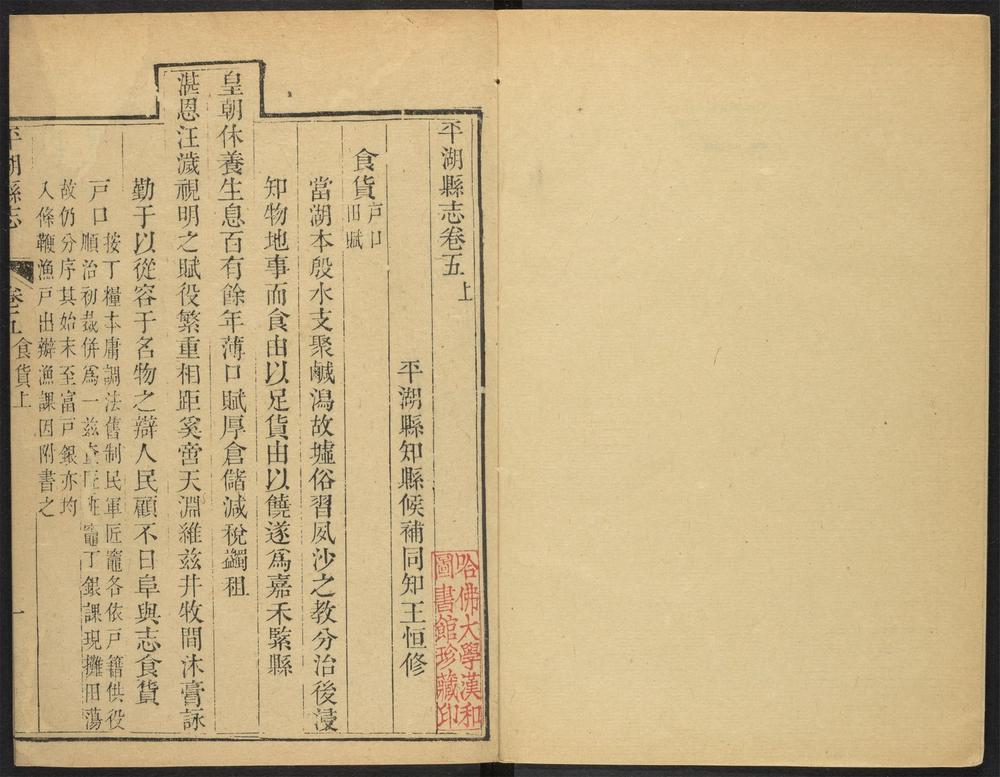 平湖縣志卷五上
平湖縣知縣候補同知王恒修
食貨戶口
田賦
當湖本殷水支聚鹹潟故墟俗習夙沙之教分治後浸
知物地事而食由以足貨由以饒遂爲嘉禾緊縣
皇朝休養生息百有餘年薄口賦厚倉儲減稅蠲租
湛恩汪濊視明之賦役繁重相距奚啻天淵維兹井牧間沐膏詠
勤于以從容于名物之辯人民顧不日阜與志食貨
戶口按丁糧本庸調法舊制民軍匠竈各依戶籍供役
順治初裁併爲一兹查匠班竈丁銀課現攤田蕩
故仍分序其始末至富戶銀亦均
入條鞭漁戶出辦漁課因附書之
平湖縣志
卷五食貨上
一
哈佛大學漢和
圖書館珍藏印